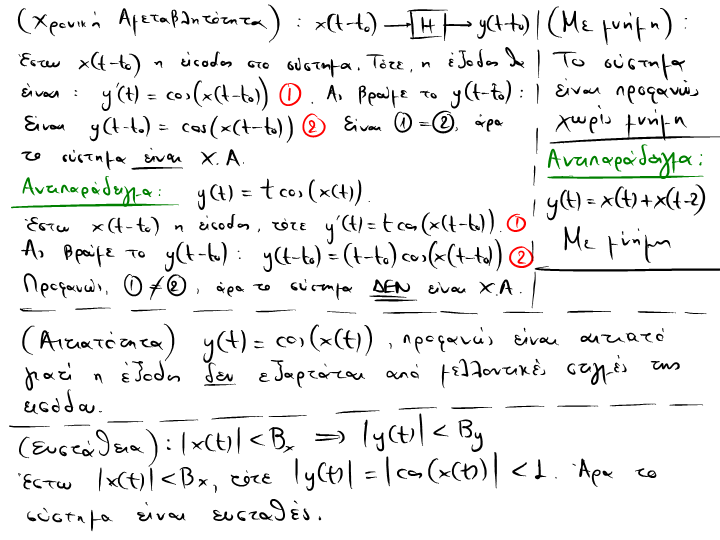 (Χρονική Αμεταβλητότητα) : x(t-t₀) → H → y(t-t₀)
Έστω x(t-t₀) η είσοδος στο σύστημα. Τότε, η έξοδος θα
είναι : y'(t) = cos(x(t-t₀)) ①. Ας βρούμε το y(t-t₀) :
Είναι y(t-t₀) = cos(x(t-t₀)) ② Είναι ① = ②, άρα
το σύστημα είναι Χ.Α.
Αντιπαράδειγμα: y(t) = t cos(x(t)).
Έστω x(t-t₀) η είσοδος, τότε y'(t) = t cos(x(t-t₀)). ①
Ας βρούμε το y(t-t₀) : y(t-t₀) = (t-t₀) cos(x(t-t₀)) ②
Προφανώς, ① ≠ ②, άρα το σύστημα ΔΕΝ είναι Χ.Α.
(Με μνήμη) :
Το σύστημα
είναι προφανώς
χωρίς μνήμη
Αντιπαράδειγμα:
y(t) = x(t) + x(t-2)
Με μνήμη
(Αιτιατότητα) y(t) = cos(x(t)), προφανώς είναι αιτιατό
γιατί η έξοδος δεν εξαρτάται από μελλοντικές στιγμές της
εισόδου.
(Ευστάθεια) : |x(t)| < Bx ⇒ |y(t)| < By
Έστω |x(t)| < Bx, τότε |y(t)| = |cos(x(t))| < 1. Άρα το
σύστημα είναι ευσταθές.